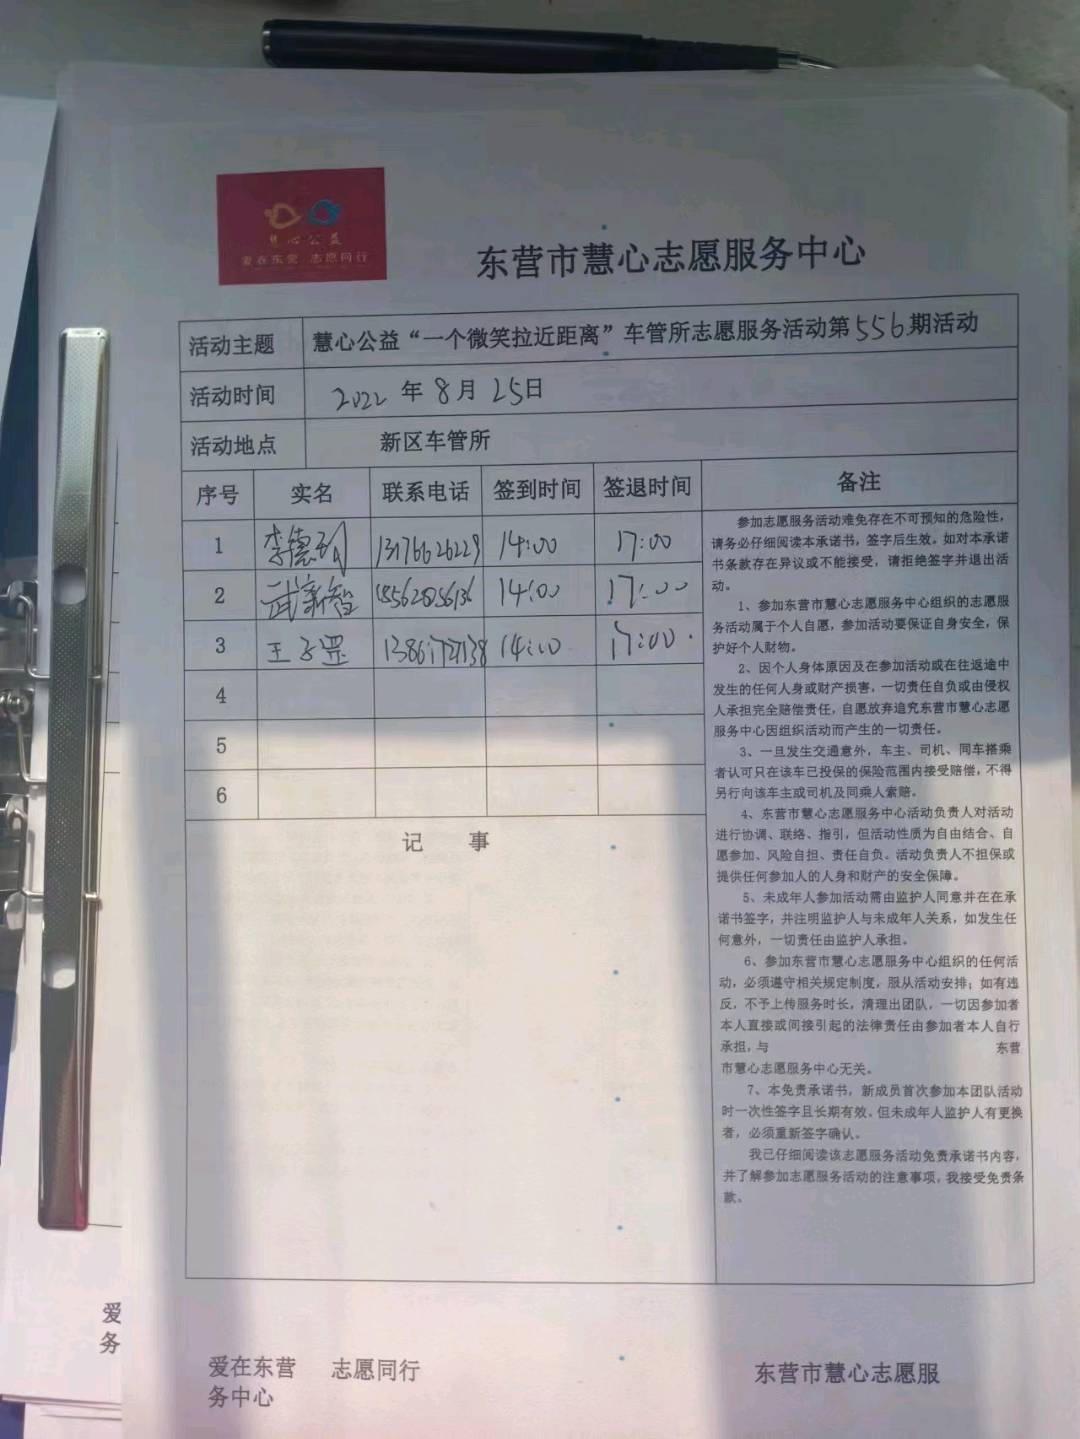 慧心公益
爱在东营 志愿同行
东营市慧心志愿服务中心
活动主题 慧心公益“一个微笑拉近距离”车管所志愿服务活动第556期活动
活动时间 2022年8月25日
活动地点 新区车管所
序号 实名 联系电话 签到时间 签退时间 备注
1 李德 13176626229 14:00 17:00
2 武新智 14:00 17:00
3 王子罡 14:00 17:00
4
5
6
记 事
参加志愿服务活动难免存在不可预知的危险性，
请务必仔细阅读本承诺书，签字后生效。如对本承诺
书条款存在异议或不能接受，请拒绝签字并退出活
动。
1、参加东营市慧心志愿服务中心组织的志愿服
务活动属于个人自愿，参加活动要保证自身安全，保
护好个人财物。
2、因个人身体原因及在参加活动或在往返途中
发生的任何人身或财产损害，一切责任自负或由侵权
人承担完全赔偿责任，自愿放弃追究东营市慧心志愿
服务中心因组织活动而产生的一切责任。
3、一旦发生交通意外，车主、司机、同车搭乘
者认可只在该车已投保的保险范围内接受赔偿，不得
另行向该车主或司机及同乘人索赔。
4、东营市慧心志愿服务中心活动负责人对活动
进行协调、联络、指引，但活动性质为自由结合、自
愿参加、风险自担、责任自负。活动负责人不担保或
提供任何参加人的人身和财产的安全保障。
5、未成年人参加活动需由监护人同意并在在承
诺书签字，并注明监护人与未成年人关系，如发生任
何意外，一切责任由监护人承担。
6、参加东营市慧心志愿服务中心组织的任何活
动，必须遵守相关规定制度，服从活动安排；如有违
反，不予上传服务时长，清理出团队，一切因参加者
本人直接或间接引起的法律责任由参加者本人自行
承担，与 东营
市慧心志愿服务中心无关。
7、本免责承诺书，新成员首次参加本团队活动
时一次性签字且长期有效。但未成年人监护人有更换
者，必须重新签字确认。
我已仔细阅读该志愿服务活动免责承诺书内容，
并了解参加志愿服务活动的注意事项，我接受免责条
款。
爱在东营 志愿同行 东营市慧心志愿服
务中心
爱
务